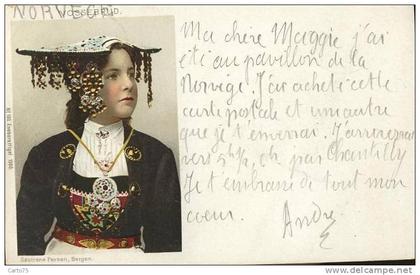 NORVEGE
VOSSEBRUD.
Ma chère Maggie j'ai
été au pavillon de la
Norvège. J'ai acheté cette
carte postale et une autre
que je t'enverrai. J'arriverai
vers 5h½, ch. par Chantilly
Je t'embrasse de tout mon
coeur.
André
No 103 Eneberettiget 1900
Sostrene Persen, Bergen.
Carto75
© delcampe.net